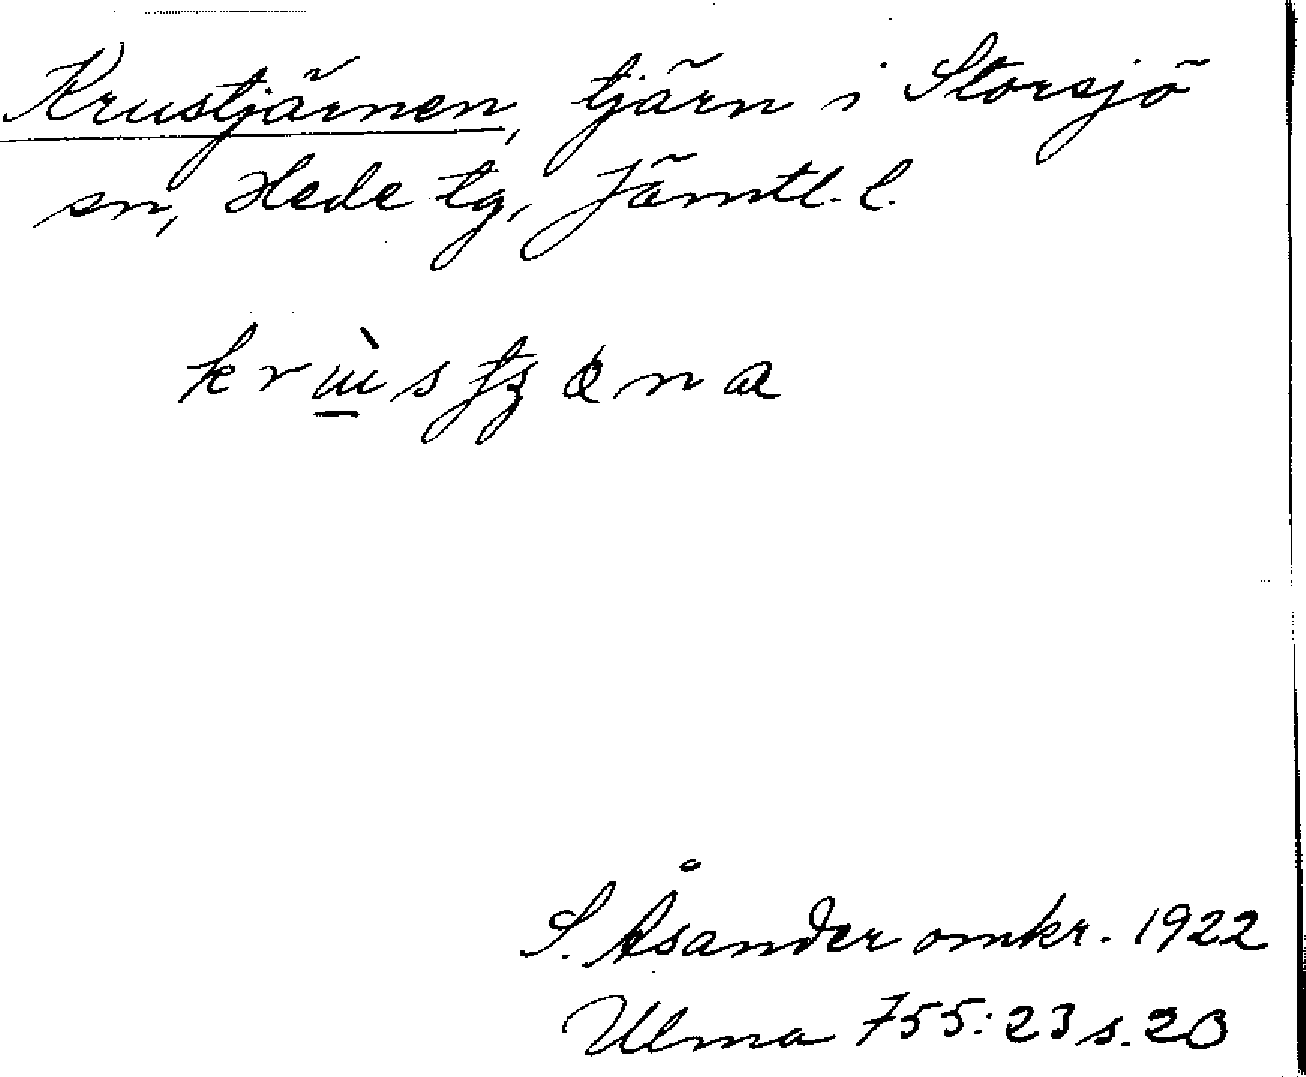 Krustjärnen, tjärn i Storsjö
sn, Hede tg, Jämtl. l.
S. Åsander omkr. 1922
Ulma 755:23 s. 23